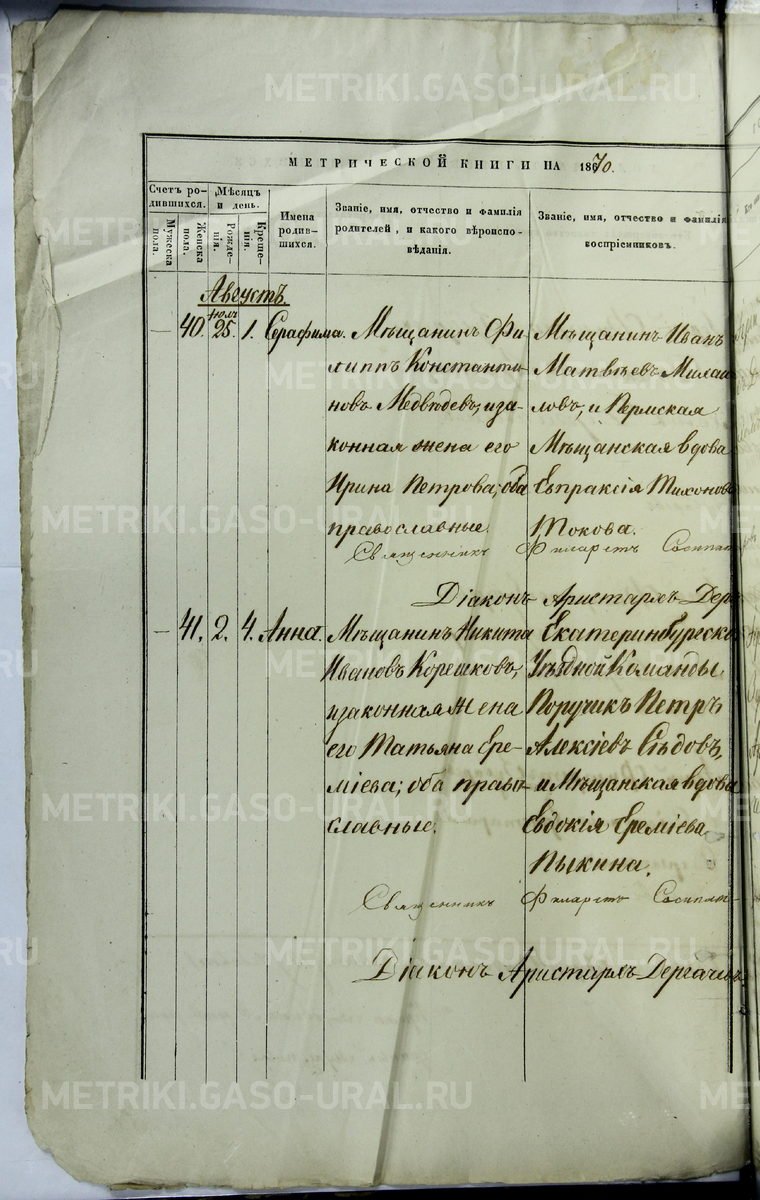 МЕТРИЧЕСКОЙ КНИГИ НА 1870.
Счетъ ро-
дившихся.
Мѣсяцъ
и день.
Мужеска
пола.
Женска
пола.
Рожде-
нія.
Креще-
нія.
Имена
родив-
шихся.
Званіе, имя, отчество и фамилія
родителей, и какого вѣроиспо-
вѣданія.
Званіе, имя, отчество и фамилія
воспріемниковъ.
Августъ.
— 40. Іюль 25. 1. Серафима.
Мѣщанинъ Фи-
липпъ Константи-
новъ Медвѣдевъ, и за-
конная жена его
Ирина Петрова; оба
православные.
Мѣщанинъ Иванъ
Матвѣевъ
ловъ, и Пермская
Мѣщанская вдова
Евпраксія Тихонова
Токова.
Священникъ Филаретъ
Діаконъ Аристархъ Дерг
— 41. 2. 4. Анна.
Мѣщанинъ Никита
Ивановъ Корешковъ,
и законная жена
его Татьяна Ере-
міева; оба право-
славные.
Екатеринбургской
Уѣздной Команды
Поручикъ Петръ
Алексіевъ Сѣдовъ,
и Мѣщанская вдова
Евдокія Ереміева
Пыкина.
Священникъ Филаретъ
Діаконъ Аристархъ Дергачевъ
METRIKI.GASO-URAL.RU